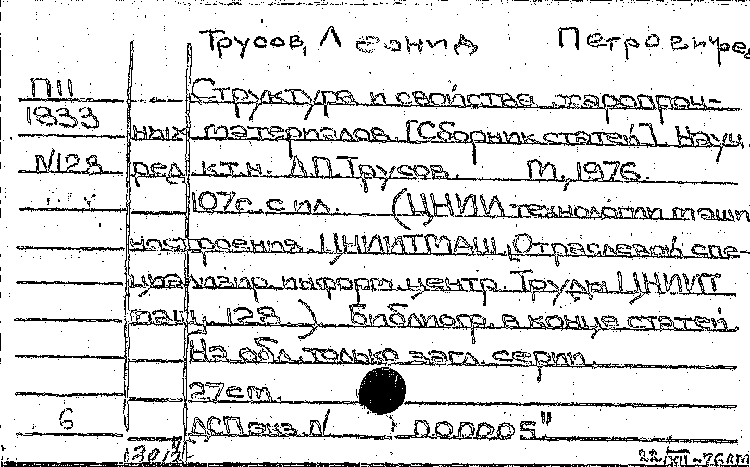 Трусов, Леонид Петрович ред
П11 Структура и свойства жаропроч-
1833 ных материалов. [Сборник статей]. Науч.
N128 ред. к.т.н. Л.П. Трусов. М., 1976.
107с. с ил. (ЦНИИ технологии маши
ностроения. ЦНИИТМАШ, Отраслевой спе-
циализир. информ. центр. Труды ЦНИИТ
маш, 128) Библиогр. в конце статей.
На обл. только загл. серии.
27см.
6 ДСП экз. N 000005"
130 22/XII-76